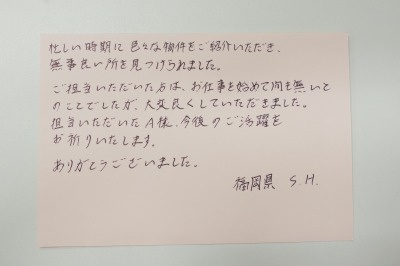 忙しい時期に色々な物件をご紹介いただき、
無事良い所を見つけられました。
ご担当いただいた方は、お仕事を始めて間も無いと
のことでしたが、大変良くしていただきました。
担当いただいたA様、今後のご活躍を
お祈りいたします。
ありがとうございました。
福岡県 S.H.